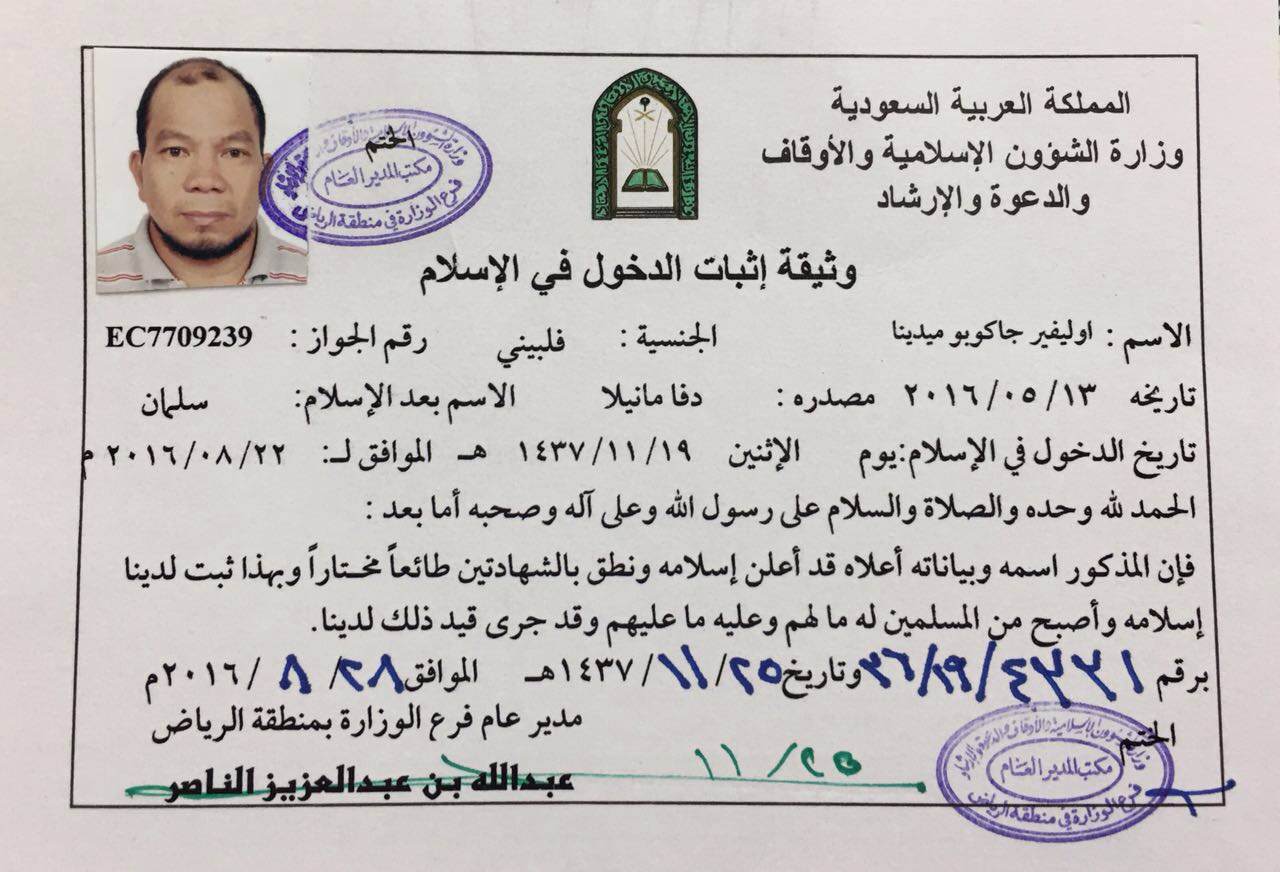 المملكة العربية السعودية
وزارة الشؤون الإسلامية والأوقاف
والدعوة والإرشاد
الختم
مكتب المدير العام
فرع الوزارة في منطقة الرياض
وثيقة إثبات الدخول في الإسلام
الاسم : اوليفير جاكوبو ميدينا الجنسية : فلبيني رقم الجواز : EC7709239
تاريخه ٢٠١٦/٠٥/١٣ مصدره : دفا مانيلا الاسم بعد الإسلام: سلمان
تاريخ الدخول في الإسلام:يوم الإثنين ١٤٣٧/١١/١٩ هـ الموافق لـ: ٢٠١٦/٠٨/٢٢ م
الحمد لله وحده والصلاة والسلام على رسول الله وعلى آله وصحبه أما بعد :
فإن المذكور اسمه وبياناته أعلاه قد أعلن إسلامه ونطق بالشهادتين طائعاً مختاراً وبهذا ثبت لدينا
إسلامه وأصبح من المسلمين له ما لهم وعليه ما عليهم وقد جرى قيد ذلك لدينا.
برقم وتاريخ ٢٥/١١/١٤٣٧هـ الموافق ٢٨/٨/٢٠١٦م
مدير عام فرع الوزارة بمنطقة الرياض
الختم
عبدالله بن عبدالعزيز الناصر
١١/٢٥
مكتب المدير العام
فرع الوزارة في منطقة الرياض